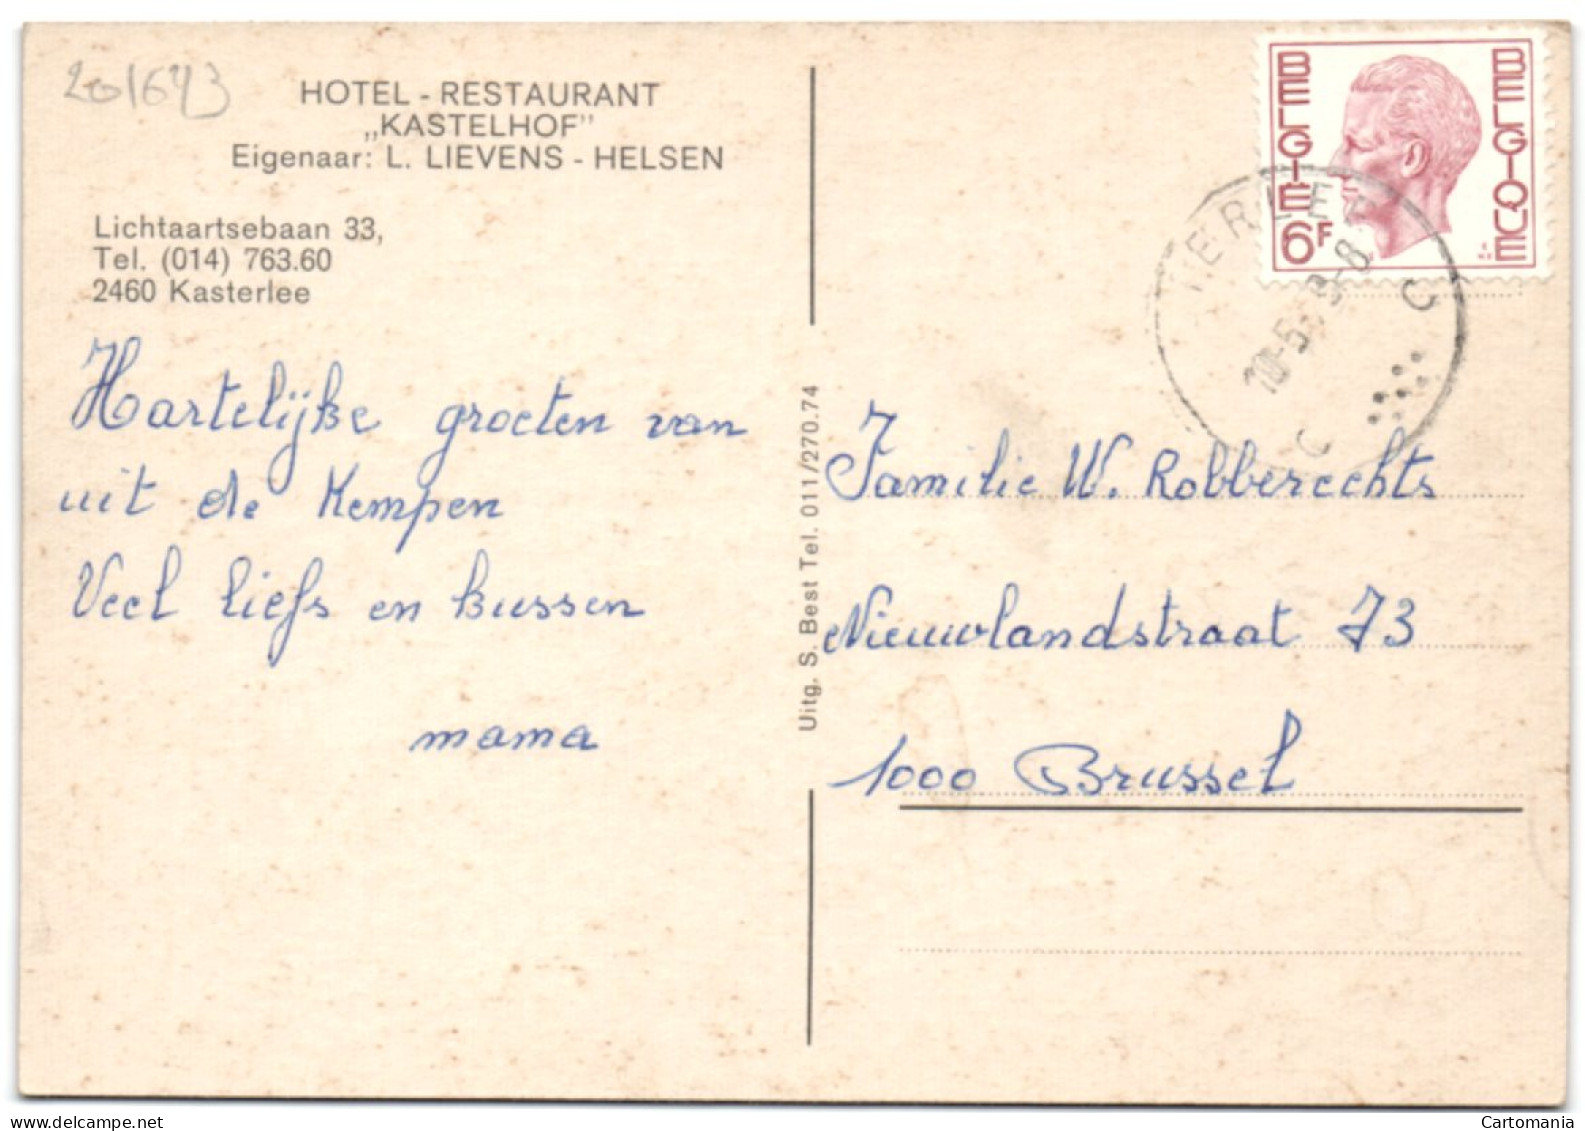 201643
HOTEL - RESTAURANT
„KASTELHOF”
Eigenaar: L. LIEVENS - HELSEN
Lichtaartsebaan 33,
Tel. (014) 763.60
2460 Kasterlee
Hartelijke groeten van
uit de Kempen
Veel liefs en kussen
mama
Uitg. S. Best Tel. 011/270.74
BELGIE
6F
BELGIQUE
10-5
C
Familie W. Robberechts
Nieuwlandstraat 73
1000 Brussel
www.delcampe.net
Cartomania